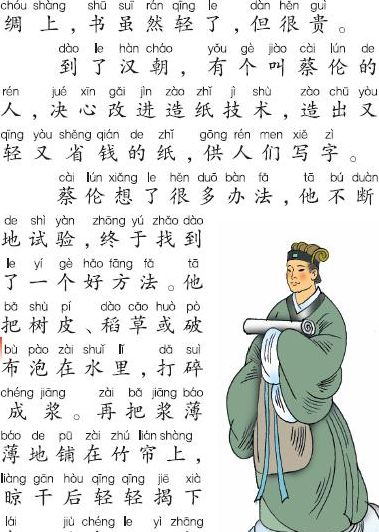 chóu shàng shū suī rán qīng le dàn hěn guì
绸上，书虽然轻了，但很贵。
dào le hàn cháo yǒu gè jiào cài lún de
到了汉朝，有个叫蔡伦的
rén jué xīn gǎi jìn zào zhǐ jì shù zào chū yòu
人，决心改进造纸技术，造出又
qīng yòu shěng qián de zhǐ gōng rén men xiě zì
轻又省钱的纸，供人们写字。
cài lún xiǎng le hěn duō bàn fǎ tā bú duàn
蔡伦想了很多办法，他不断
de shì yàn zhōng yú zhǎo dào
地试验，终于找到
le yí gè hǎo fāng fǎ tā
了一个好方法。他
bǎ shù pí dào cǎo huò pò
把树皮、稻草或破
bù pào zài shuǐ lǐ dǎ suì
布泡在水里，打碎
chéng jiāng zài bǎ jiāng báo
成浆。再把浆薄
báo de pū zài zhú lián shàng
薄地铺在竹帘上，
liàng gān hòu qīng qīng jiē xià
晾干后轻轻揭下
lái jiù chéng le yì zhāng